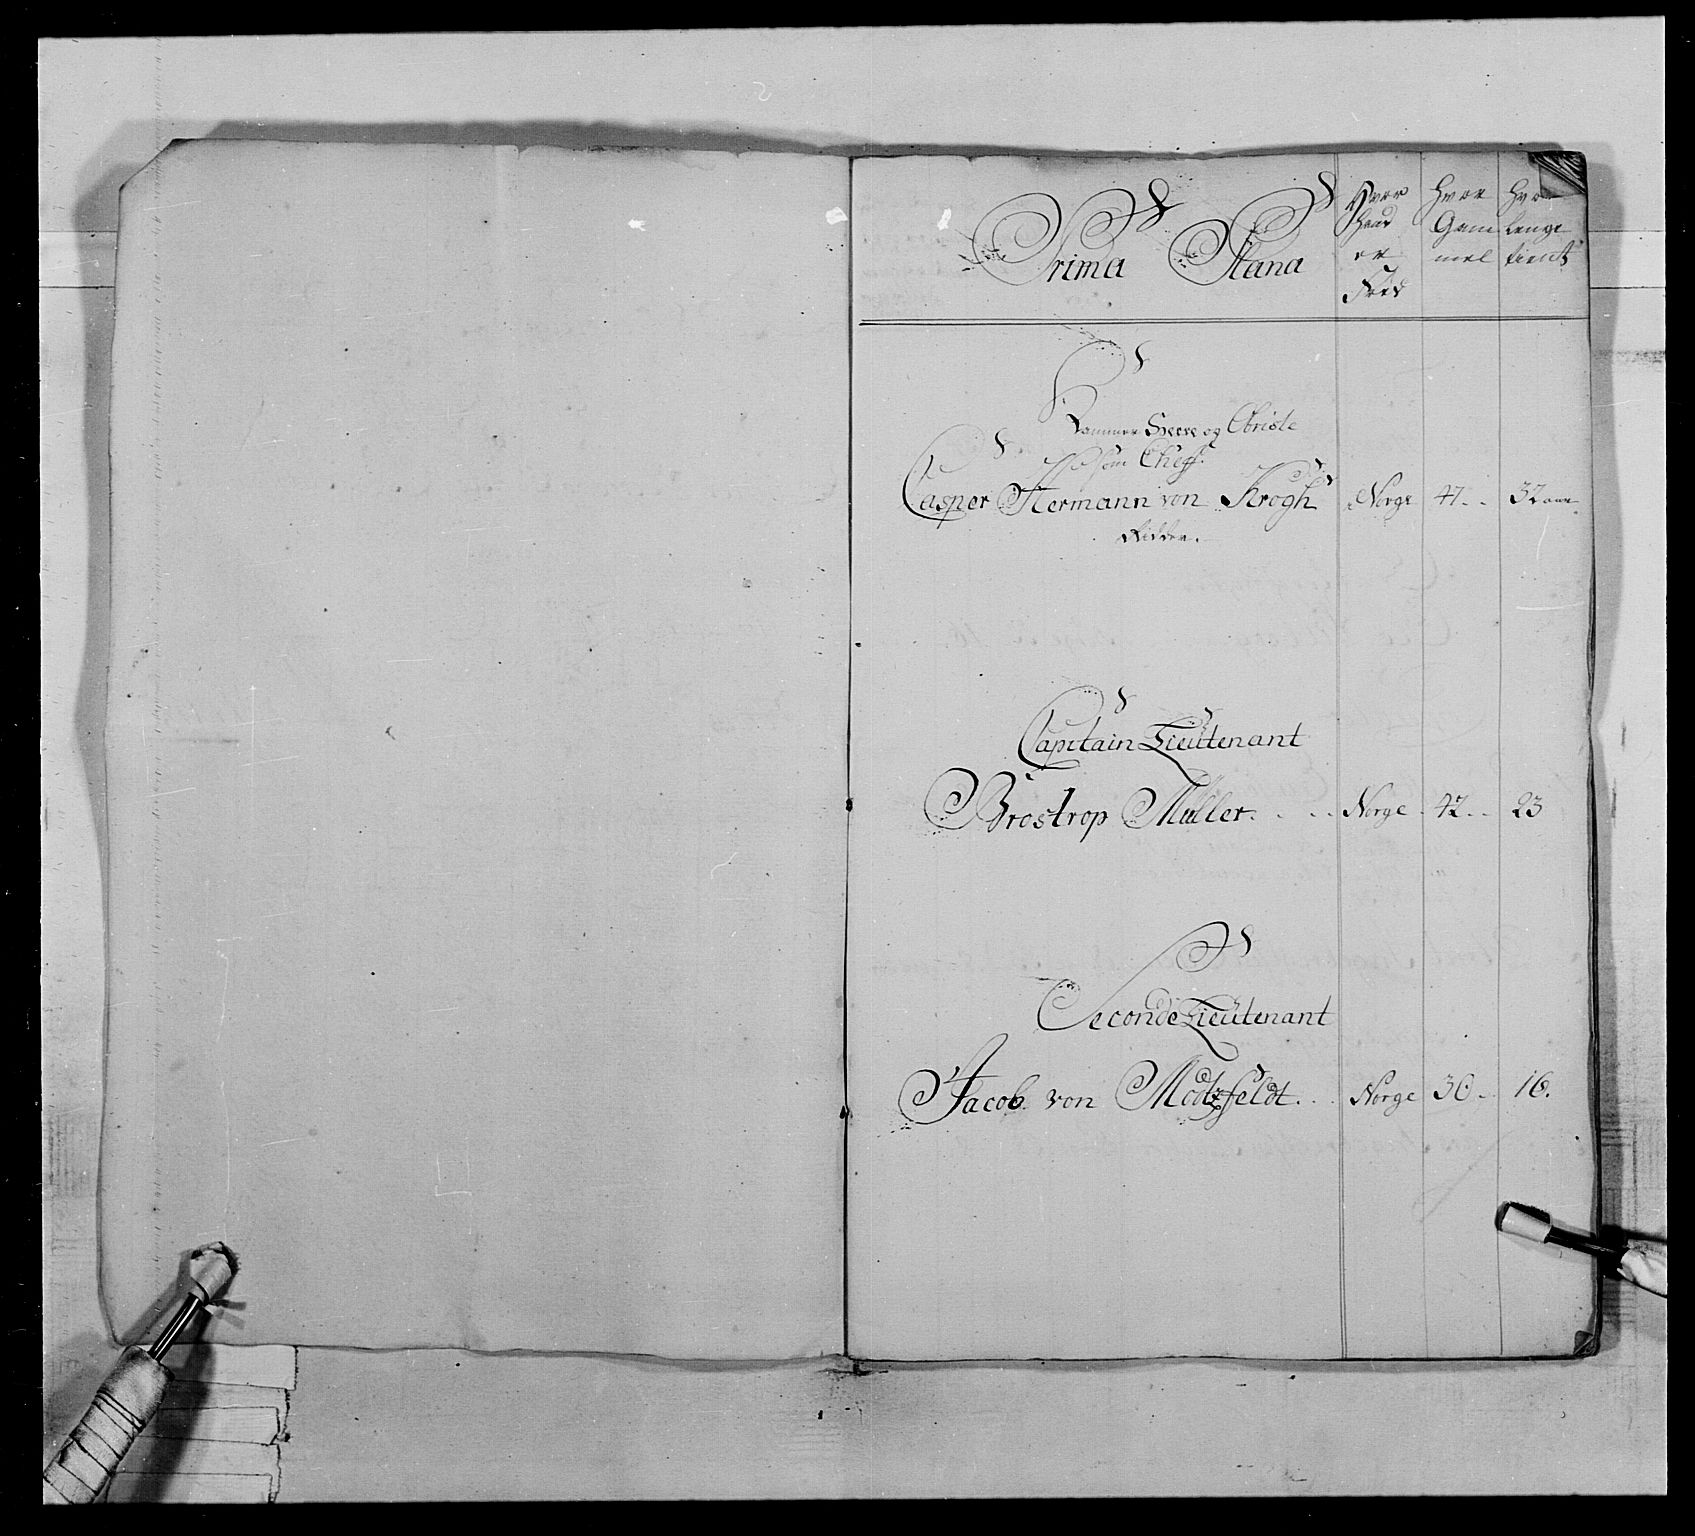 Prima Plana
Hvor
er
Fød
Hvor
Gam
mel
Hvor
lenge
tient
Kammer Herre og Obriste
som Cheff.
Casper Hermann von Krogh Norge 47 .. 32 aar
Ridder.
Capitain Lieutenant
Brostrop Müller . . . Norge . 42 .. 23
Seconde Lieutenant
Jacob von Motzfeldt . . Norge 30 .. 16.